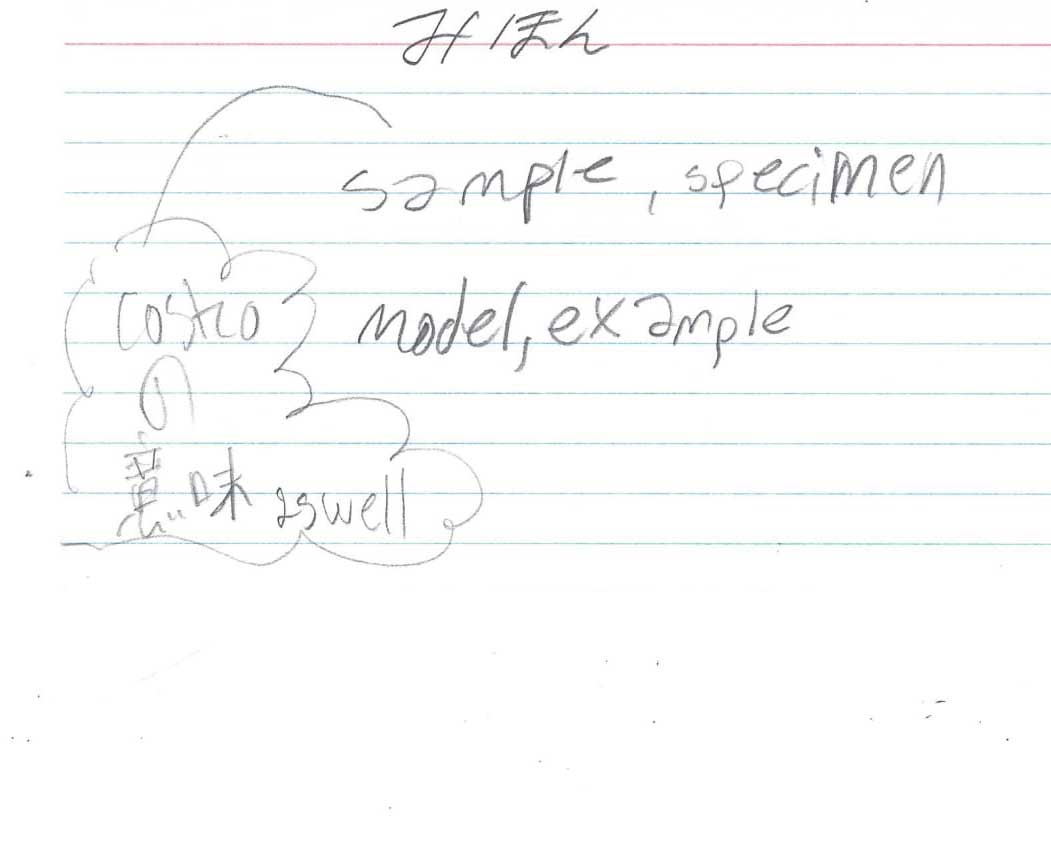 みほん
sample, specimen
model, example
costco
の
意味 aswell